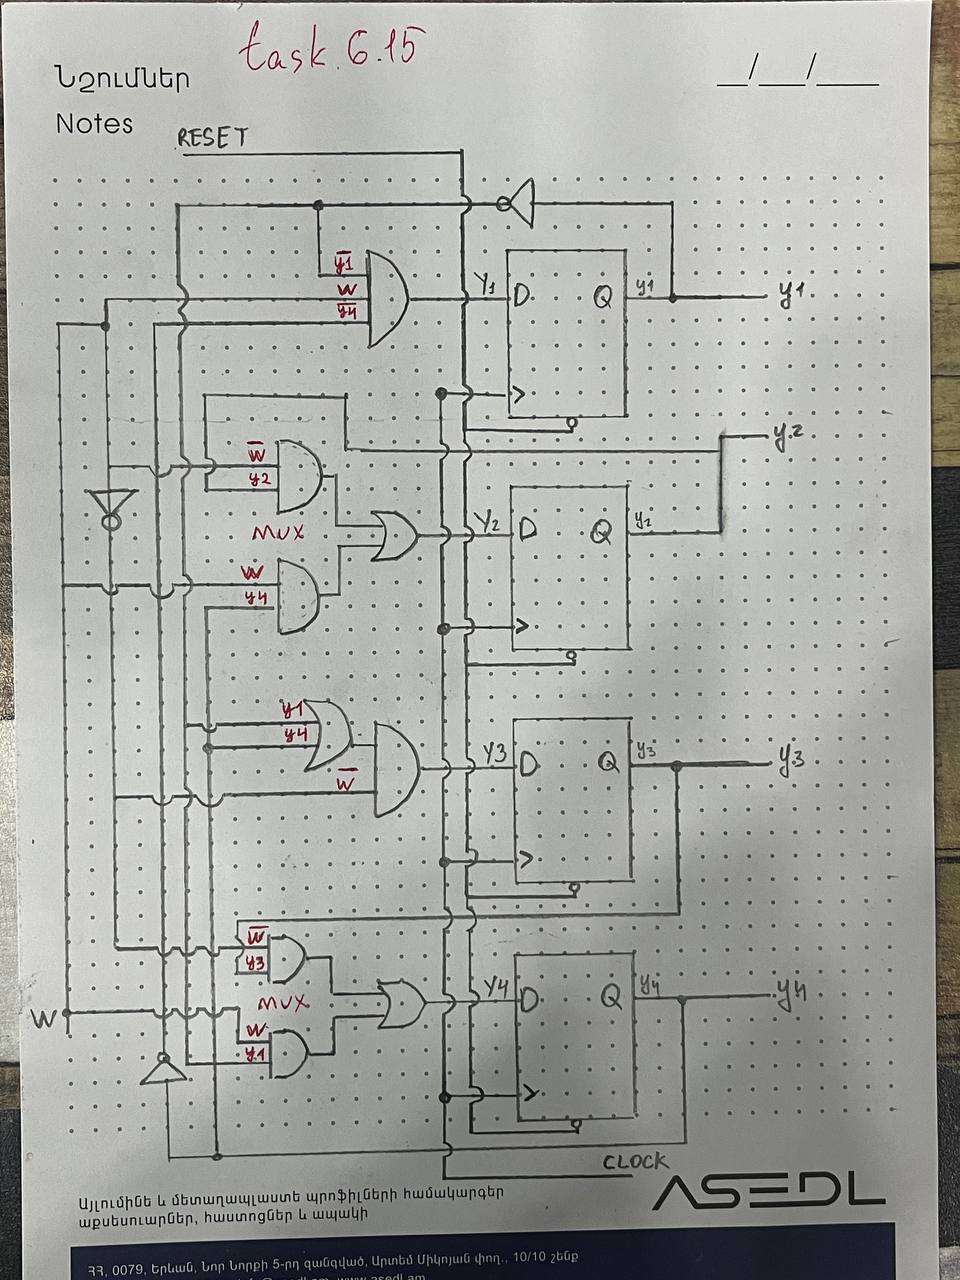 task 6.15
Նշումներ
__/__/____
Notes
RESET
y1
w
y4
Y1
D
Q
y1
y1
>
y2
w
y2
MUX
Y2
D
Q
y2
w
y4
>
y1
y4
Y3
D
Q
y3
y3
w
>
w
y3
MUX
Y4
D
Q
y4
y4
W
w
y1
>
CLOCK
ASEDL
Այլումինե և մետաղապլաստե պրոֆիլների համակարգեր
աքսեսուարներ, հաստոցներ և ապակի
ՀՀ, 0079, Երևան, Նոր Նորքի 5-րդ զանգված, Արտեմ Միկոյան փող., 10/10 շենք